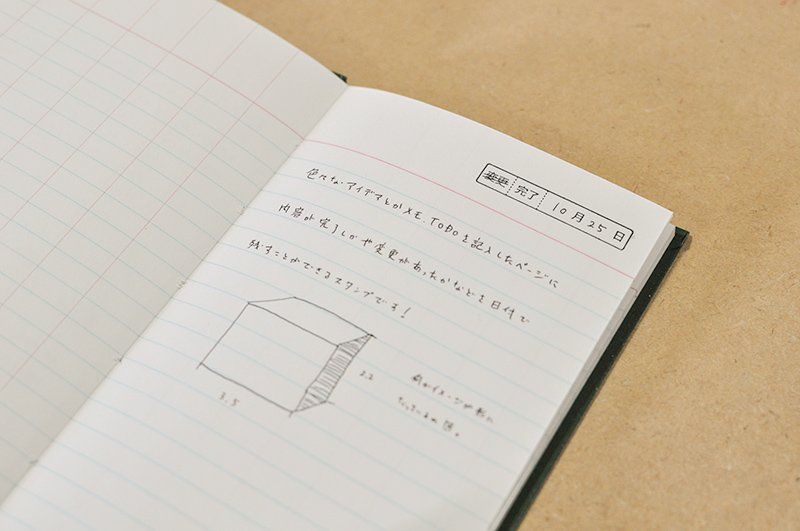 変更 完了 10月25日
色々なアイデアとかメモ、TODOを記入したページに
内容が完了しかや変更があったかなどを日付で
残すことができるスタンプです!
3.5
2.2
イメージが